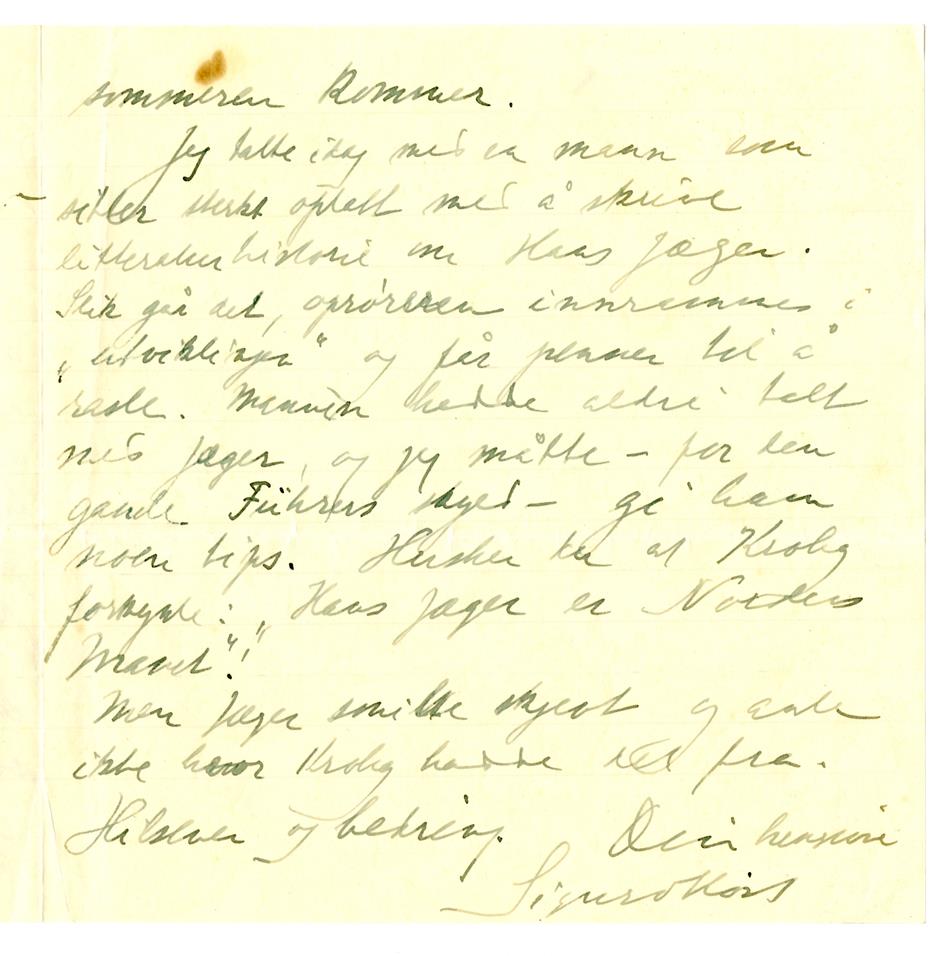 sommeren kommer.
Jeg talte idag med en mann som
sitter sterkt optatt med å skrive
litteraturhistorie om Hans Jæger.
Slik går det, oprøreren innrammes i
„utviklingen" og får penner til å
rasle. Mannen hadde aldri talt
med Jæger, og jeg måtte – for den
gamle Führers skyld – gi ham
noen tips. Husker du at Krohg
forkynte: „Hans Jæger er Nordens
Marat"!
Men Jæger smilte skjevt og ante
ikke hvor Krohg hadde det fra.
Hilsener og bedring. Din hengivne
Sigurd Høst